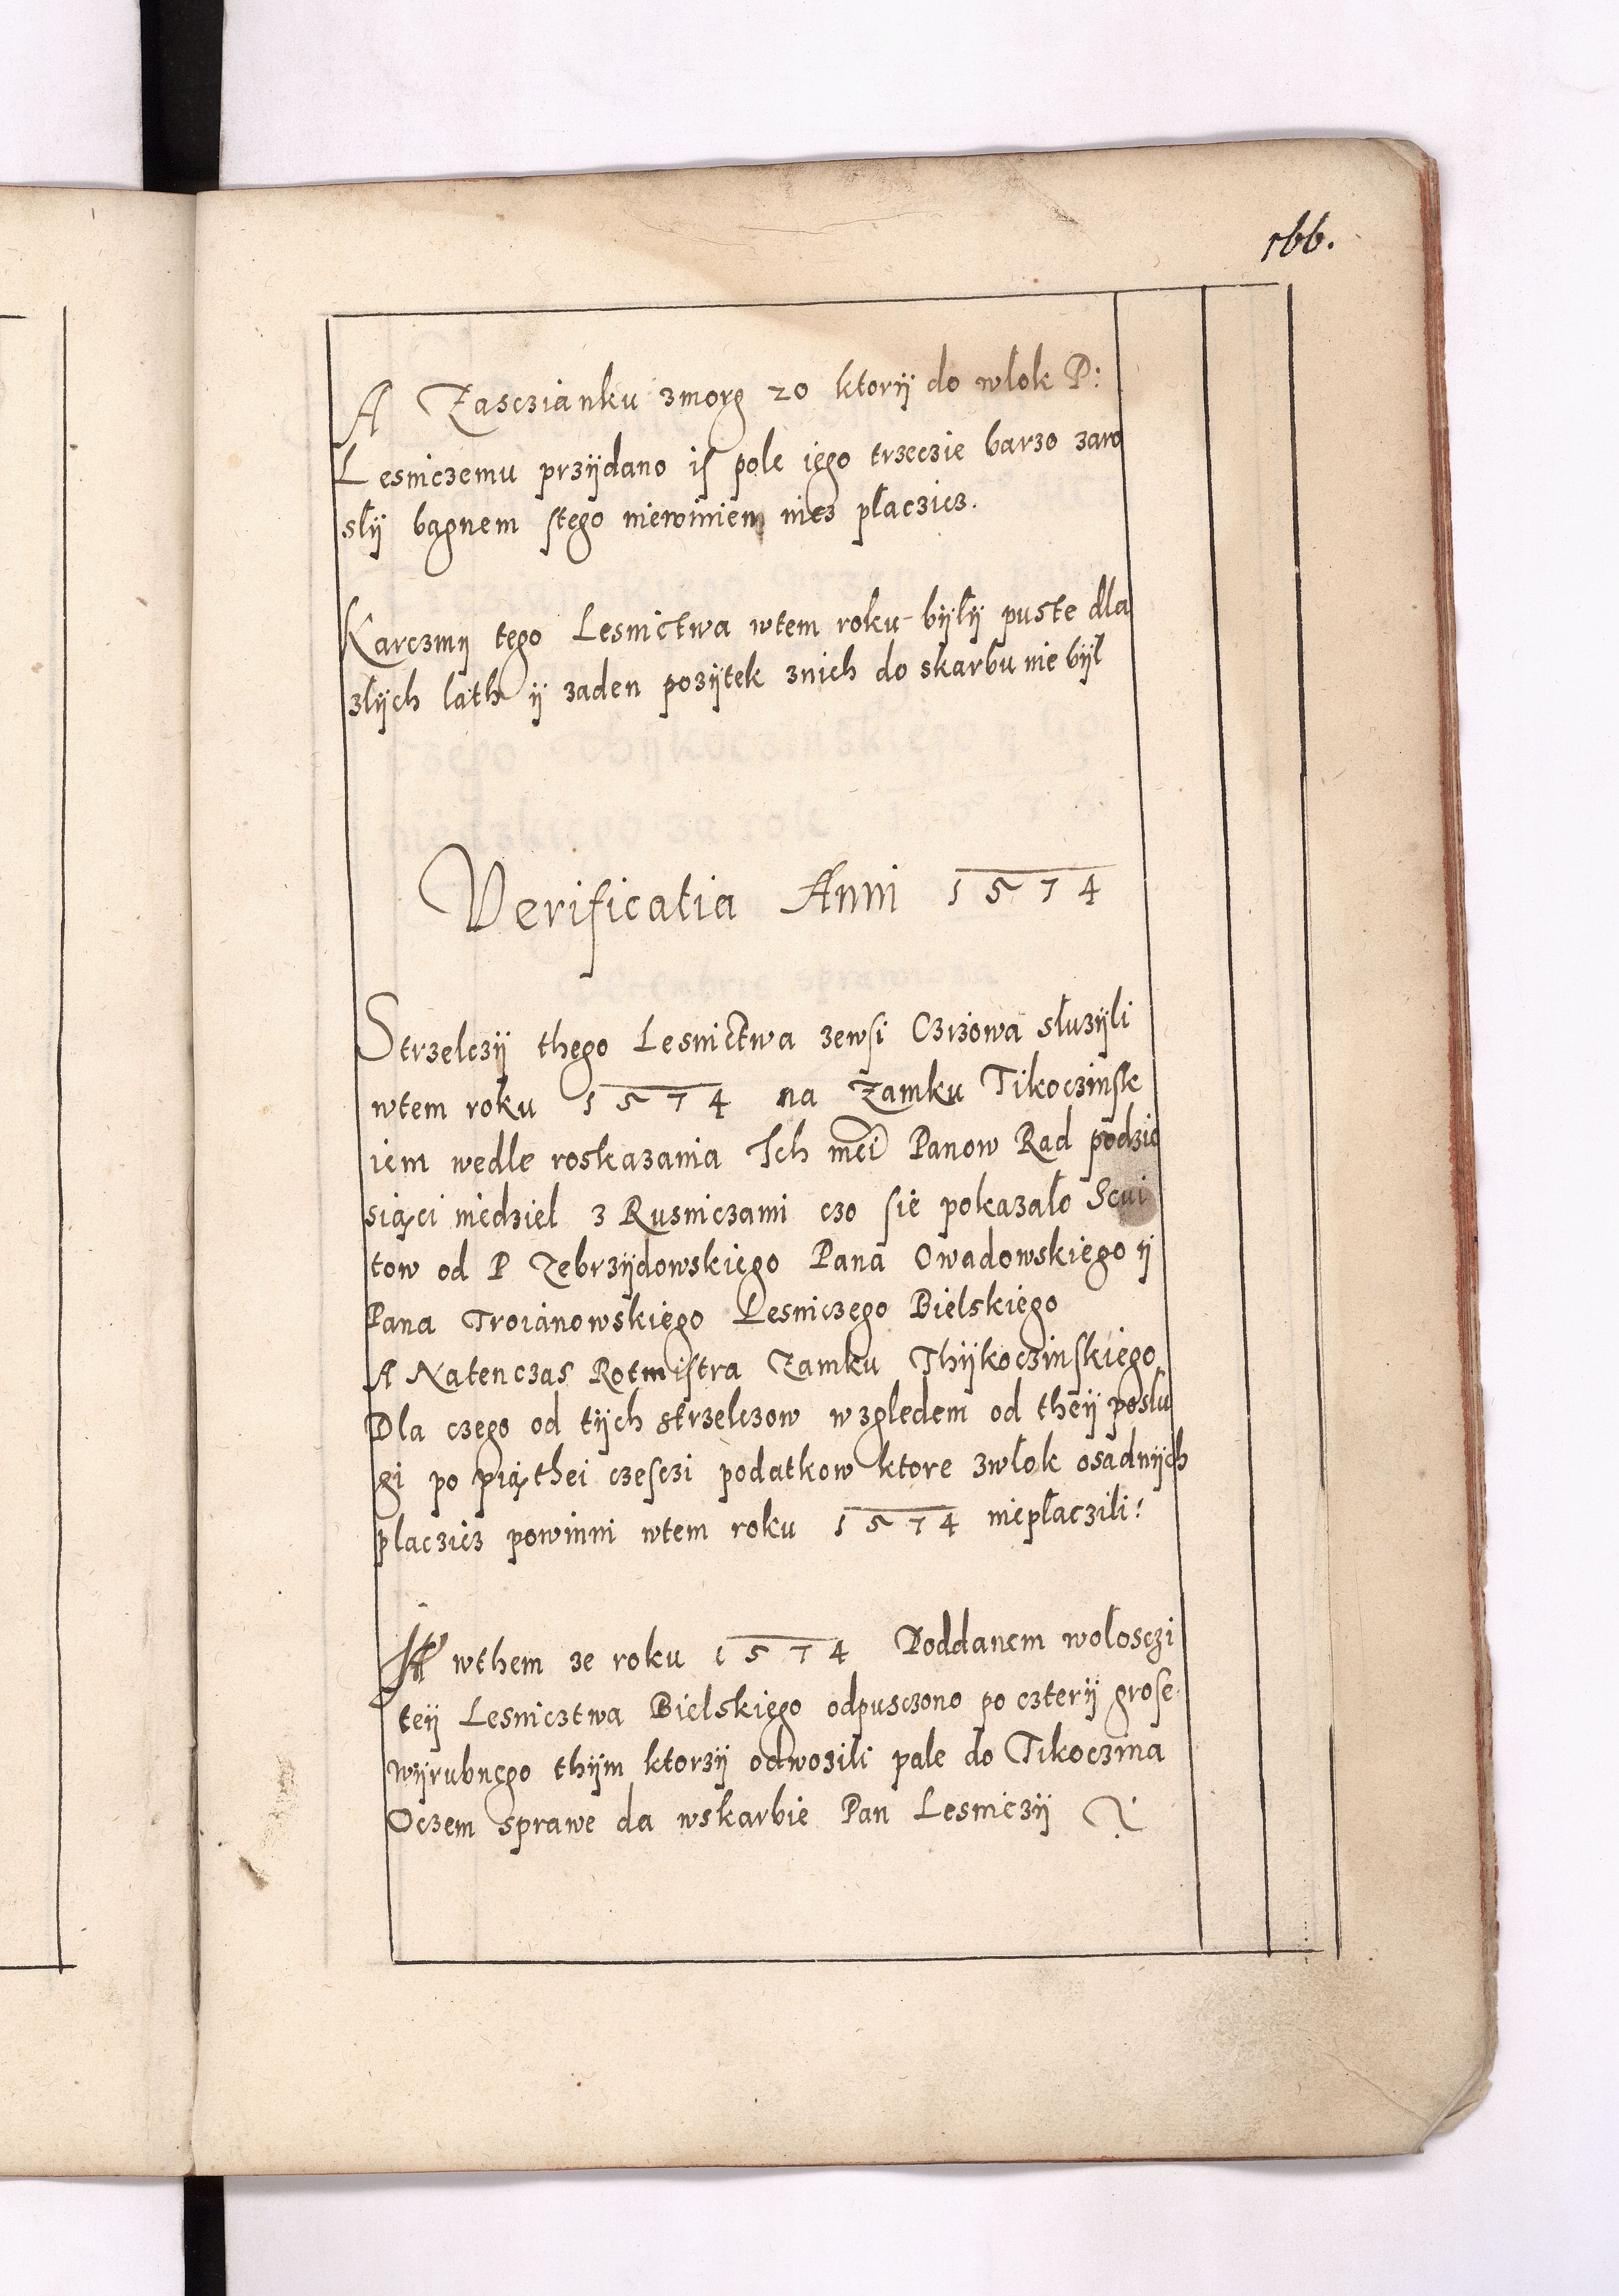 166.
A Zasczianku zmorg 20 ktorÿ do włok P:
Lesniczemu przÿdano iſ pole iego trzeczie barzo zaro
słÿ bagnem ſtego niewiniem nicz płaczicz.
Karczmÿ tego Lesnictwa wtem roku bÿłÿ puste dla
złÿch lath ÿ zaden pozÿtek znich do skarbu nie bÿł
Verificatia Anni 1574
Strzelczÿ thego Lesnictwa zewſi Czizowa słuzÿli
wtem roku 1574 na Zamku Tikoczinſk
iem wedle roskazania Ich mći Panow Rad podzie
siąci niedziel z Rusniczami czo ſie pokazało Scui
tow od P Zebrzÿdowskiego Pana Owadowskiego ÿ
Pana Troianowskiego Lesniczego Bielskiego
A Natenczas Rotmiſtra Zamku Thÿkoczinſkiego
Dla czego od tÿch strzelczow wzgledem od theÿ posłu
gi po piąthei czeſczi podatkow ktore zwłok osadnÿch
płaczicz powinni wtem roku 1574 niepłaczili:
A wthem ze roku 1574 Poddanem wołosczi
teÿ Lesnicztwa Bielskiego odpusczono po czterÿ groſe
wÿrubnego thÿm ktorzÿ odwozili pale do Tikoczina
Oczem sprawe da wskarbie Pan Lesniczÿ